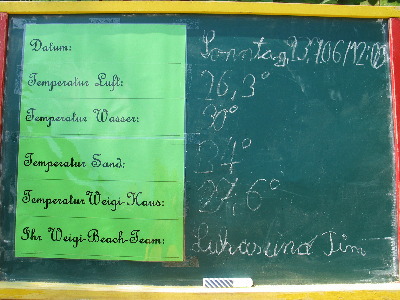 Datum: Sonntag, 23.7.06/12:00
Temperatur Luft: 26,3°
Temperatur Wasser: 30°
Temperatur Sand: 24°
Temperatur Weigi-Haus: 27,6°
Ihr Weigi-Beach-Team: Lukas und Tim